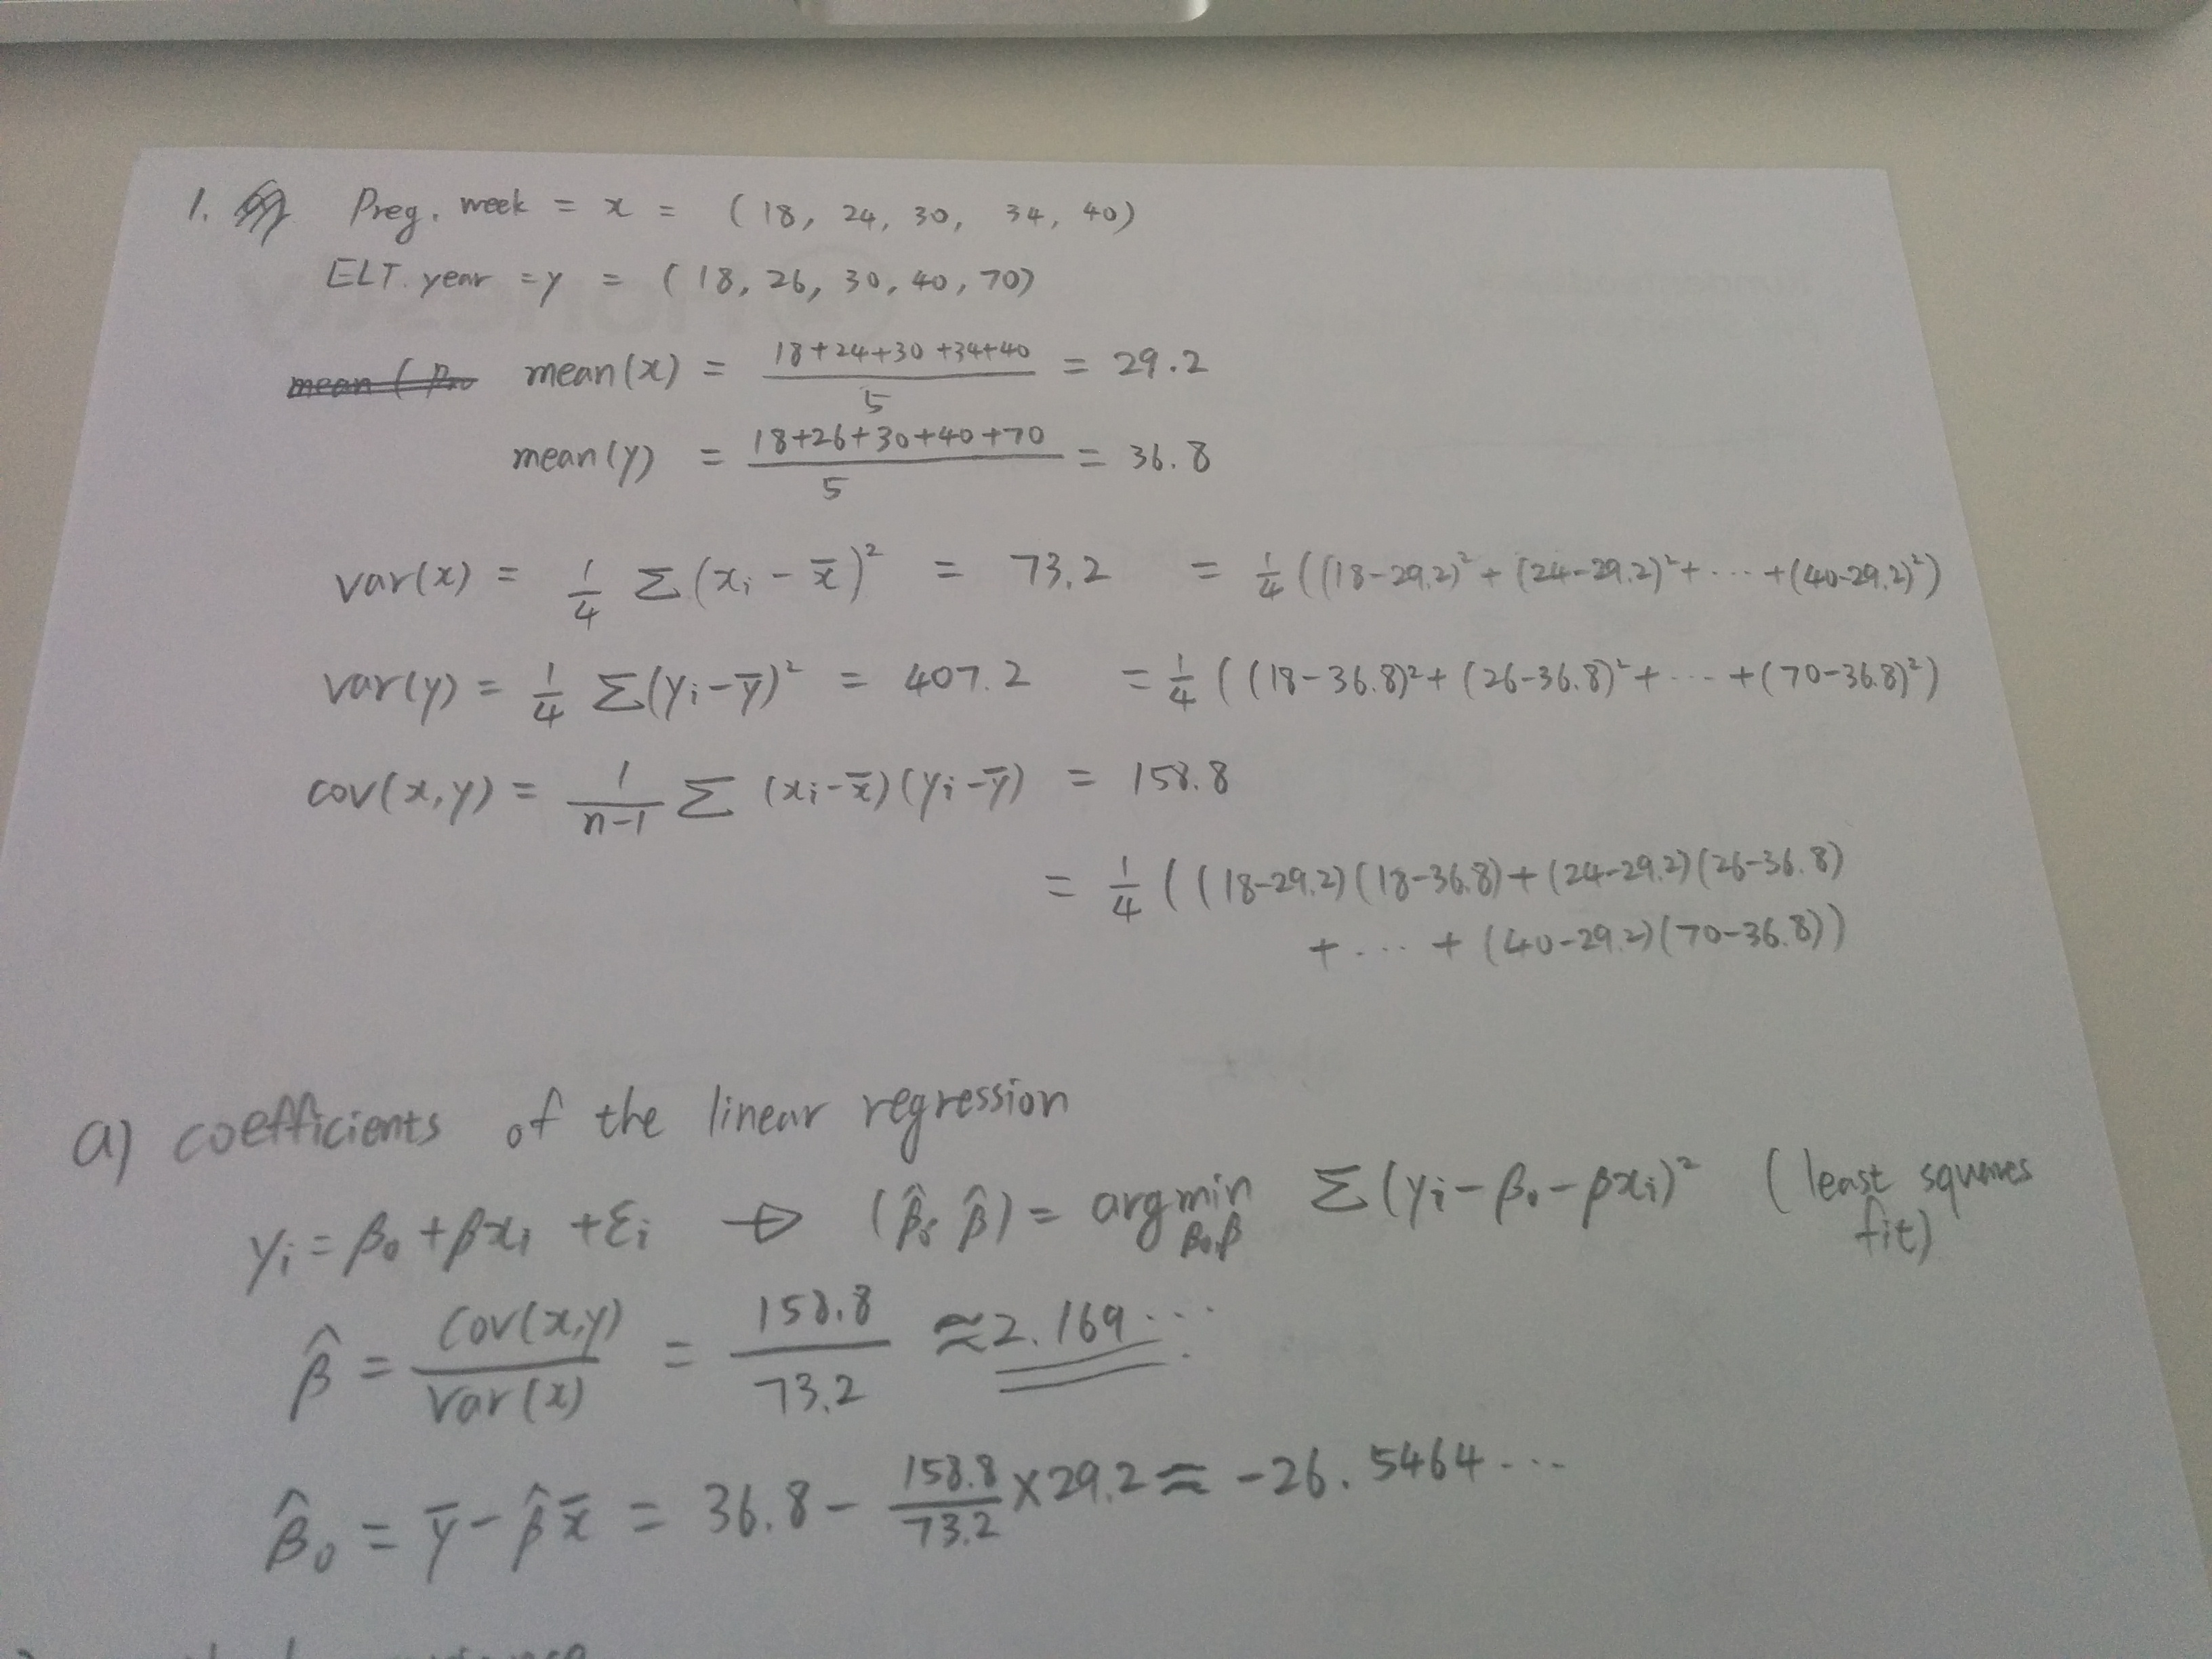 1. Preg. week = x = (18, 24, 30, 34, 40)
ELT. year = y = (18, 26, 30, 40, 70)
mean(x) = 18+24+30+34+40 / 5 = 29.2
mean(y) = 18+26+30+40+70 / 5 = 36.8
var(x) = 1/4 Σ(xᵢ - x̄)² = 73.2 = 1/4 ((18-29.2)² + (24-29.2)² + ... + (40-29.2)²)
var(y) = 1/4 Σ(yᵢ-ȳ)² = 407.2 = 1/4 ((18-36.8)² + (26-36.8)² + ... + (70-36.8)²)
cov(x,y) = 1/(n-1) Σ (xᵢ-x̄)(yᵢ-ȳ) = 158.8
= 1/4 ((18-29.2)(18-36.8) + (24-29.2)(26-36.8)
+ ... + (40-29.2)(70-36.8))
a) coefficients of the linear regression
yᵢ = β₀ + βxᵢ + εᵢ → (β̂₀, β̂) = argmin β₀,β Σ(yᵢ-β₀-βxᵢ)² (least squares
fit)
β̂ = cov(x,y) / var(x) = 158.8 / 73.2 ≈ 2.169...
β̂₀ = ȳ - β̂x̄ = 36.8 - 158.8/73.2 × 29.2 ≈ -26.5464...